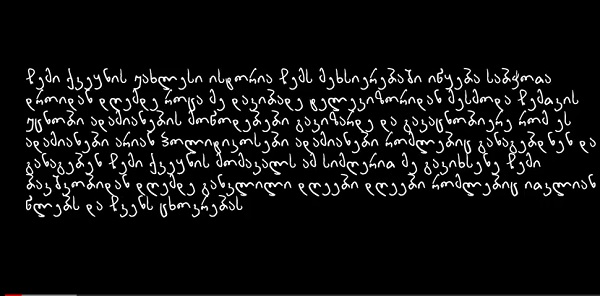 ჩემი ქვეყნის უახლესი ისტორია ჩემს მეხსიერებაში იწყება საბჭოთა
დროიდან დღემდე როცა მე დავიბადე ტელევიზორიდან მესმოდა ჩემთვის
უცნობი ადამიანების მოწოდებები გავიზარდე და გავაცნობიერე რომ ეს
ადამიანები არიან პოლიტიკოსები ადამიანები რომლებიც განაგებდნენ და
განაგებენ ჩემი ქვეყნის მომავალს ამ სიმღერით მე გავიხსენე ჩემი
ბავშვობიდან დღემდე განვლილი დღეები დღეები რომლებიც ითვლიან
წლებს და ჩვენს ცხოვრებას